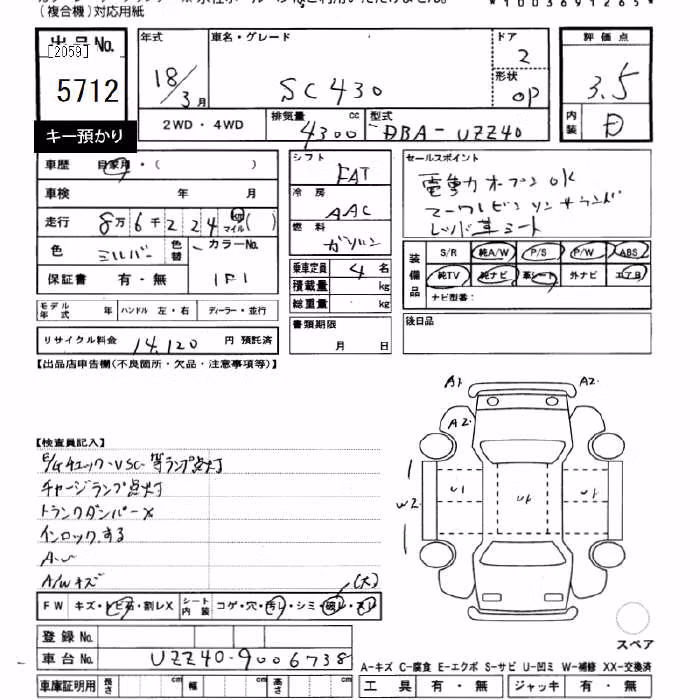 (複合機)対応用紙
*1003691265*
出品No.
[2059]
5712
キー預かり
年式
18/3月
車名・グレード
SC430
ドア
2
形状
OP
評価点
3.5
内装
D
2WD・4WD
排気量
4300 cc
型式
DBA-UZZ40
車歴 自家用・( )
車検 年 月
走行 8万6千224 km マイル( )
色 シルバー 色替 カラーNo. 1F1
保証書 有・無
シフト FAT
冷房 AAC
燃料 ガソリン
乗車定員 4名
積載量 kg
総重量 kg
セールスポイント
電動オープンOK
マークレビンソンサウンド
レッド革シート
装備品
S/R 純A/W P/S P/W ABS
純TV 純ナビ 革シート 外ナビ エアB
ナビ型番:
モデル年式 年 ハンドル 左・右 ディーラー・並行
書類期限 月 日
後日品
リサイクル料金 14,120 円 預託済
【出品店申告欄(不良箇所・欠品・注意事項等)】
A1 A2
A2
W2 U1 U1 U1
【検査員記入】
E/Gチェック・VSC等ランプ点灯
チャージランプ点灯
トランクダンパーX
インロックする
A・U
A/Wキズ
(大)
FW キズ・トビ石・割レX シート内装 コゲ・穴・汚レ・シミ・破レ・スレ
登録No.
車台No. UZZ40-9006738
車庫証明用 長さ cm 幅 cm 高さ cm
スペア
A-キズ C-腐食 E-エクボ S-サビ U-凹ミ W-補修 XX-交換済
工具 有・無 ジャッキ 有・無